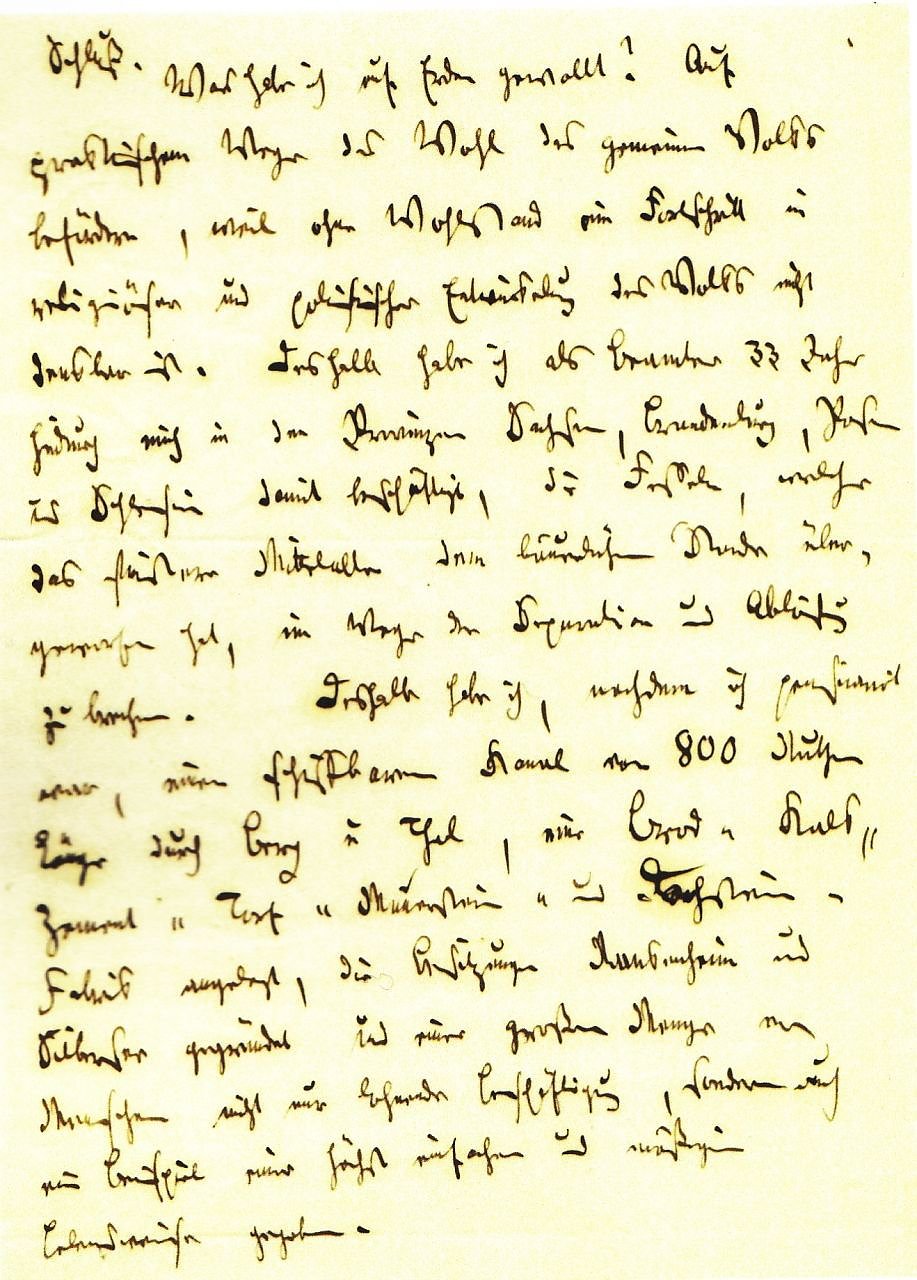 Schluß. Was habe ich auf Erden gewollt? Auf
praktischem Wege das Wohl des gemeinen Volks
befördern, weil ohne Wohlstand ein Fortschritt in
religiöser und politischer Entwickelung des Volks nicht
denkbar ist. Deshalb habe ich als Beamter 33 Jahr
hindurch mich in den Provinzen Sachsen, Brandenburg, Posen
und Schlesien damit beschäftigt, die Fesseln, welche
das finstere Mittelalter dem bäuerlichen Stande über-
geworfen hat, im Wege der Separation und Ablösung
zu brechen. Deshalb habe ich, nachdem ich pensionirt
war, einen schiffbaren Kanal von 800 Ruthen
Länge durch Berg u Thal, eine Brod- Kalk-
Zement- Torf- Mauerstein- und Dachstein-
Fabrik angelegt, die Besitzungen und
Silbersee gegründet und einer großen Menge von
Menschen nicht nur lohnende Beschäftigung, sondern auch
ein Beispiel einer höchst einfachen und mäßigen
Lebensweise gegeben.